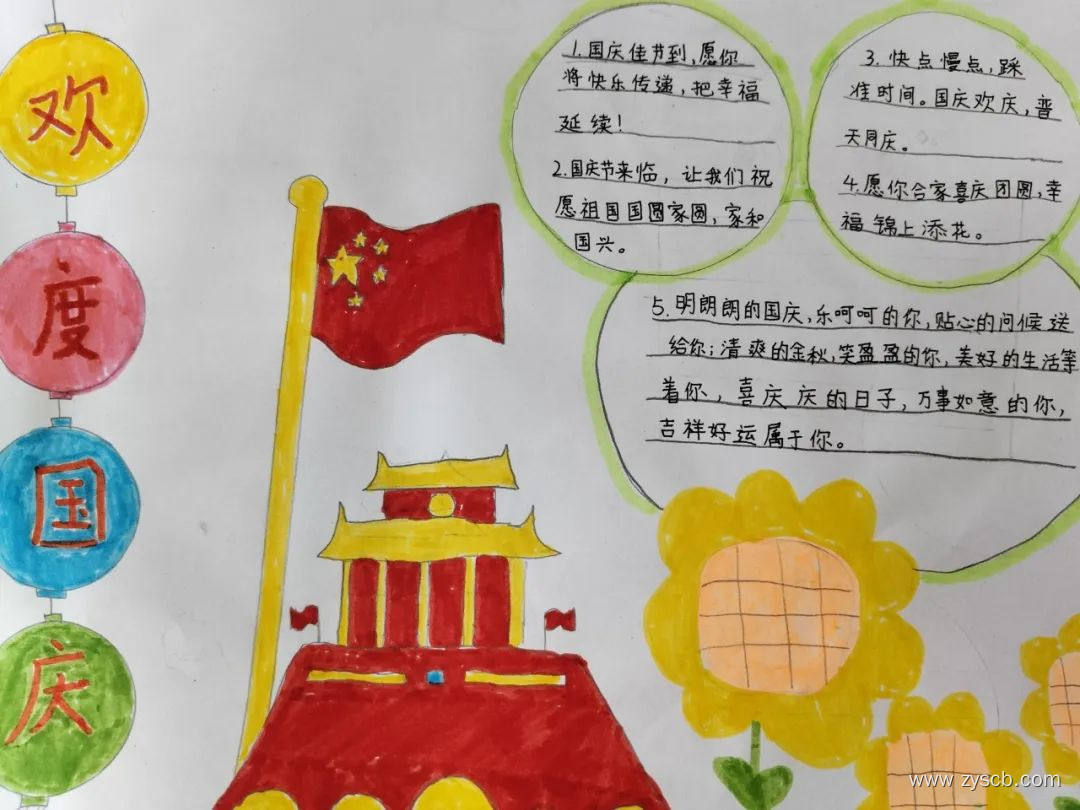 欢
度
国
庆
1.国庆佳节到,愿你
将快乐传递,把幸福
延续!
2.国庆节来临,让我们祝
愿祖国国圆家圆,家和
国兴。
3.快点慢点,踩
准时间。国庆欢庆,普
天同庆。
4.愿你合家喜庆团圆,幸
福锦上添花。
5.明朗朗的国庆,乐呵呵的你,贴心的问候送
给你;清爽的金秋,笑盈盈的你,美好的生活等
着你,喜庆庆的日子,万事如意的你,
吉祥好运属于你。
www.zyscb.com